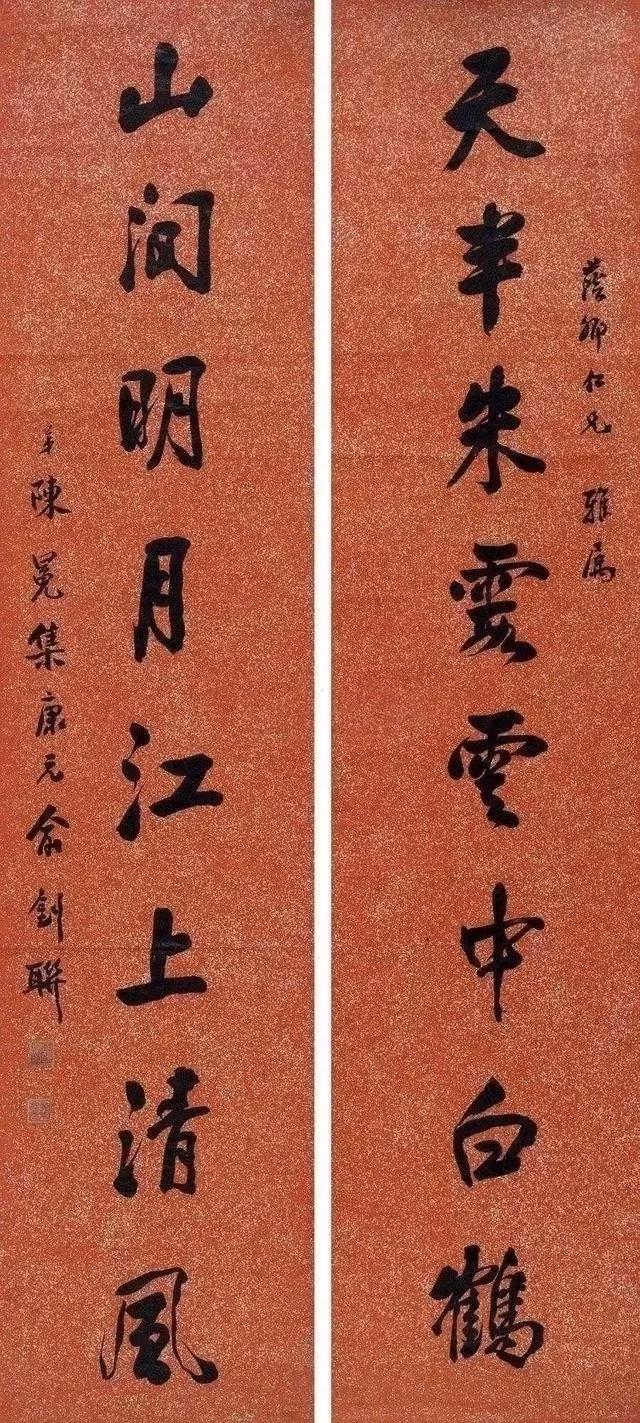 蔭卿仁兄 雅屬
天半朱霞雲中白鶴
山澗明月江上清風
弟陳冕集康元俞釗聯